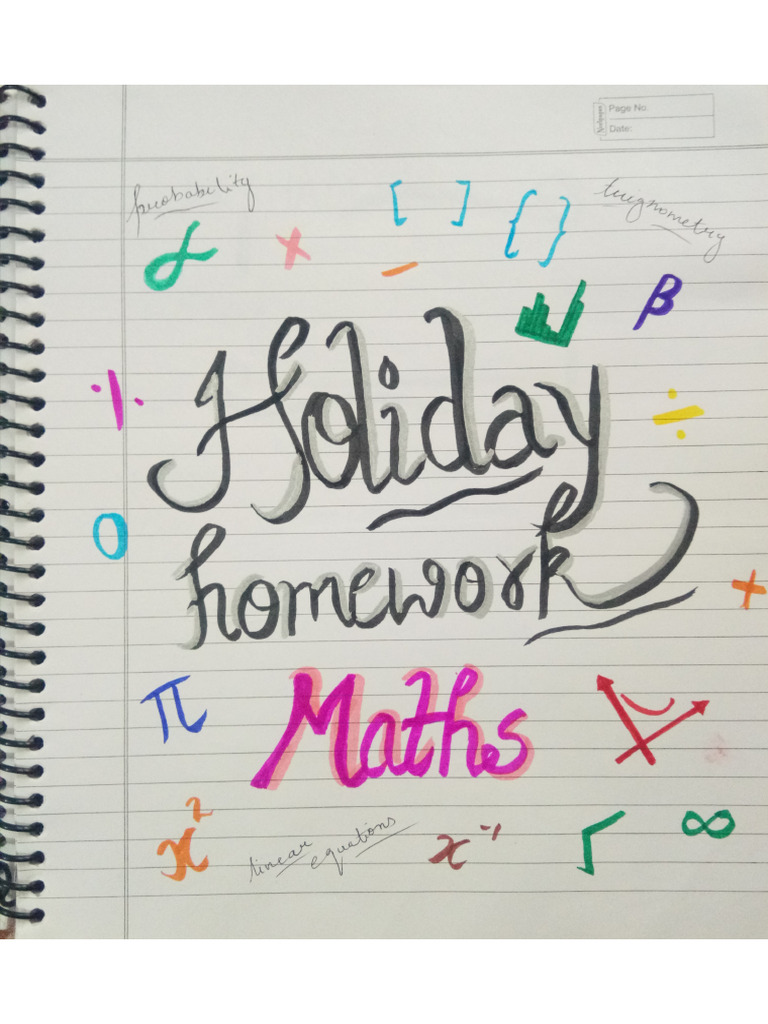 Page No.
Date:
probability
trugnometry
[ ]
{ }
α
×
−
β
%
Holiday
÷
0
homework
+
π
Maths
x²
linear
equations
x⁻¹
√
∞